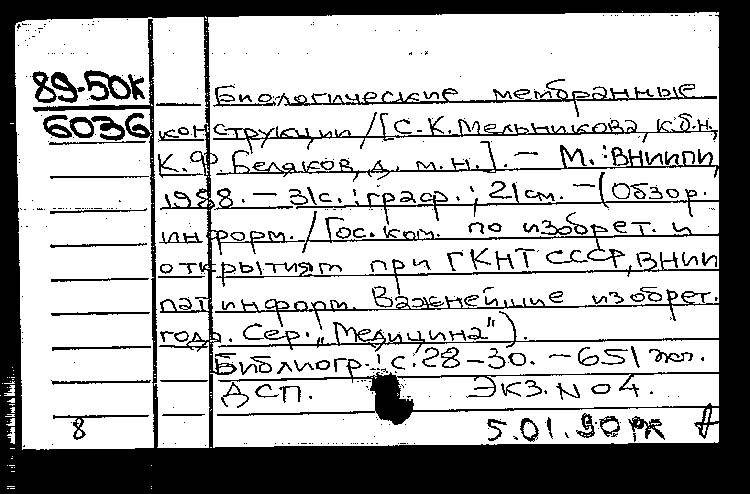 89-50К
6036
Биологические мембранные
конструкции /[С.К. Мельникова, к.б.н,
К.Ф. Беляков, д. м. н.]. — М. : ВНИИПИ,
1988. — 31с. : граф. ; 21см. — (Обзор.
информ. / Гос. ком. по изобрет. и
открытиям при ГКНТ СССР, ВНИИ
пат. информ. Важнейшие изобрет.
года. Сер. „Медицина").
Библиогр.: с. 28-30. — 651 экз.
ДСП. ЭКЗ. N 04.
8 5.01.90